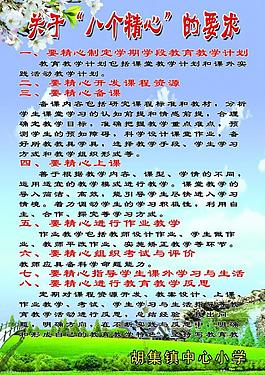 关于“八个精心”的要求
一、要精心制定学期学段教育教学计划
教育教学计划包括课堂教学计划和课外实
践活动教学计划。
二、要精心开发课程资源
三、要精心备课
备课内容包括研究课程标准和教材，分析
学生课堂学习的认知前提和情感前提，合理
确定教学目标，准确把握教学重点难点，预
测学生的预知障碍，科学设计课堂作业，备
好所教教具学具，选择教学手段、学生学习
方式和教学组织形式等。
四、要精心上课
善于根据教学内容、课型、学情的不同，
运用适宜的教学模式进行教学。课堂教学的
导入简洁、高效，能引导学生尽快进入学习
情境。着力调动学生的学习积极性，利用自
主、合作、探究等学习方式。
五、要精心进行作业教学
作业教学包括教师设计作业、学生做作
业、教师平改作业、实施矫正教学等环节。
六、要精心组织考试与评价
教师应具备科学命题能力。
七、要精心指导学生课外学习与生活
八、要精心进行教育教学反思
定期对课程资源开发、教案设计、上课
作业教学、考试、学生学习与生活指导
教学活动进行反思，总结经验
题，明确方向，在不断实践与反思中，明确
胡集镇中心小学